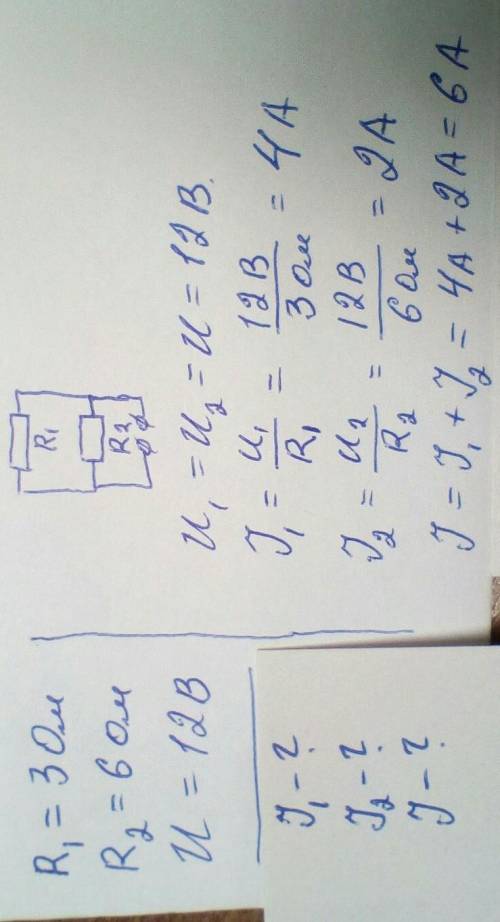 R₁ = 3 Ом
R₂ = 6 Ом
U = 12 В
J₁ - ?
J₂ - ?
J - ?
R₁
R₂
U₁ = U₂ = U = 12 В.
J₁ = U₁/R₁ = 12 В/3 Ом = 4 А
J₂ = U₂/R₂ = 12 В/6 Ом = 2 А
J = J₁ + J₂ = 4 А + 2 А = 6 А